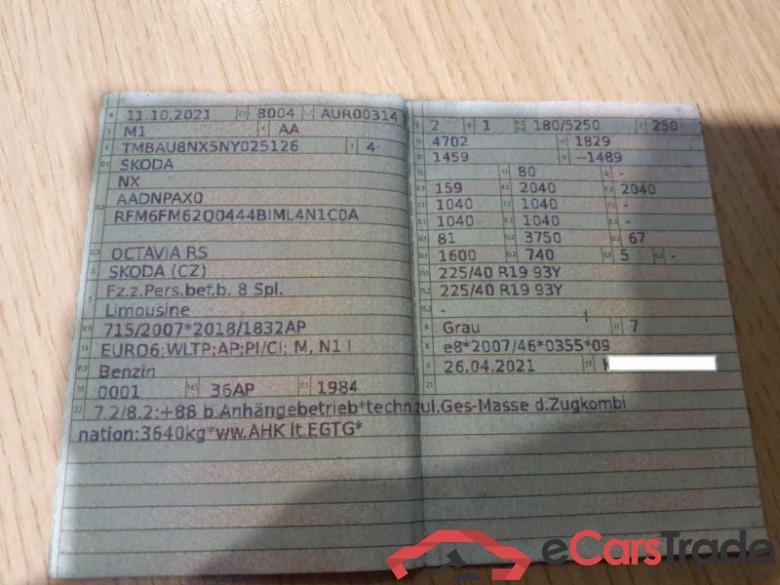 11.10.2021 8004 AUR00314
M1 AA
TMBAU8NX5NY025126 4
SKODA
NX
AADNPAX0
RFM6FM62Q0444BIML4N1C0A
OCTAVIA RS
SKODA (CZ)
Fz.z.Pers.bef.b. 8 Spl.
Limousine
715/2007*2018/1832AP
EURO6;WLTP;AP;PI/CI; M, N1 I
Benzin
0001 36AP 1984
2 1 180/5250 250
4702 1829
1459 --1489
80 -
159 2040 2040
1040 1040 -
1040 1040 -
81 3750 67
1600 740 5 -
225/40 R19 93Y
225/40 R19 93Y
-
Grau 7
e8*2007/46*0355*09
26.04.2021
7.2/8.2:+88 b.Anhängebetrieb*techn.zul.Ges-Masse d.Zugkombi
nation:3640kg*ww.AHK lt.EGTG*
eCarsTrade